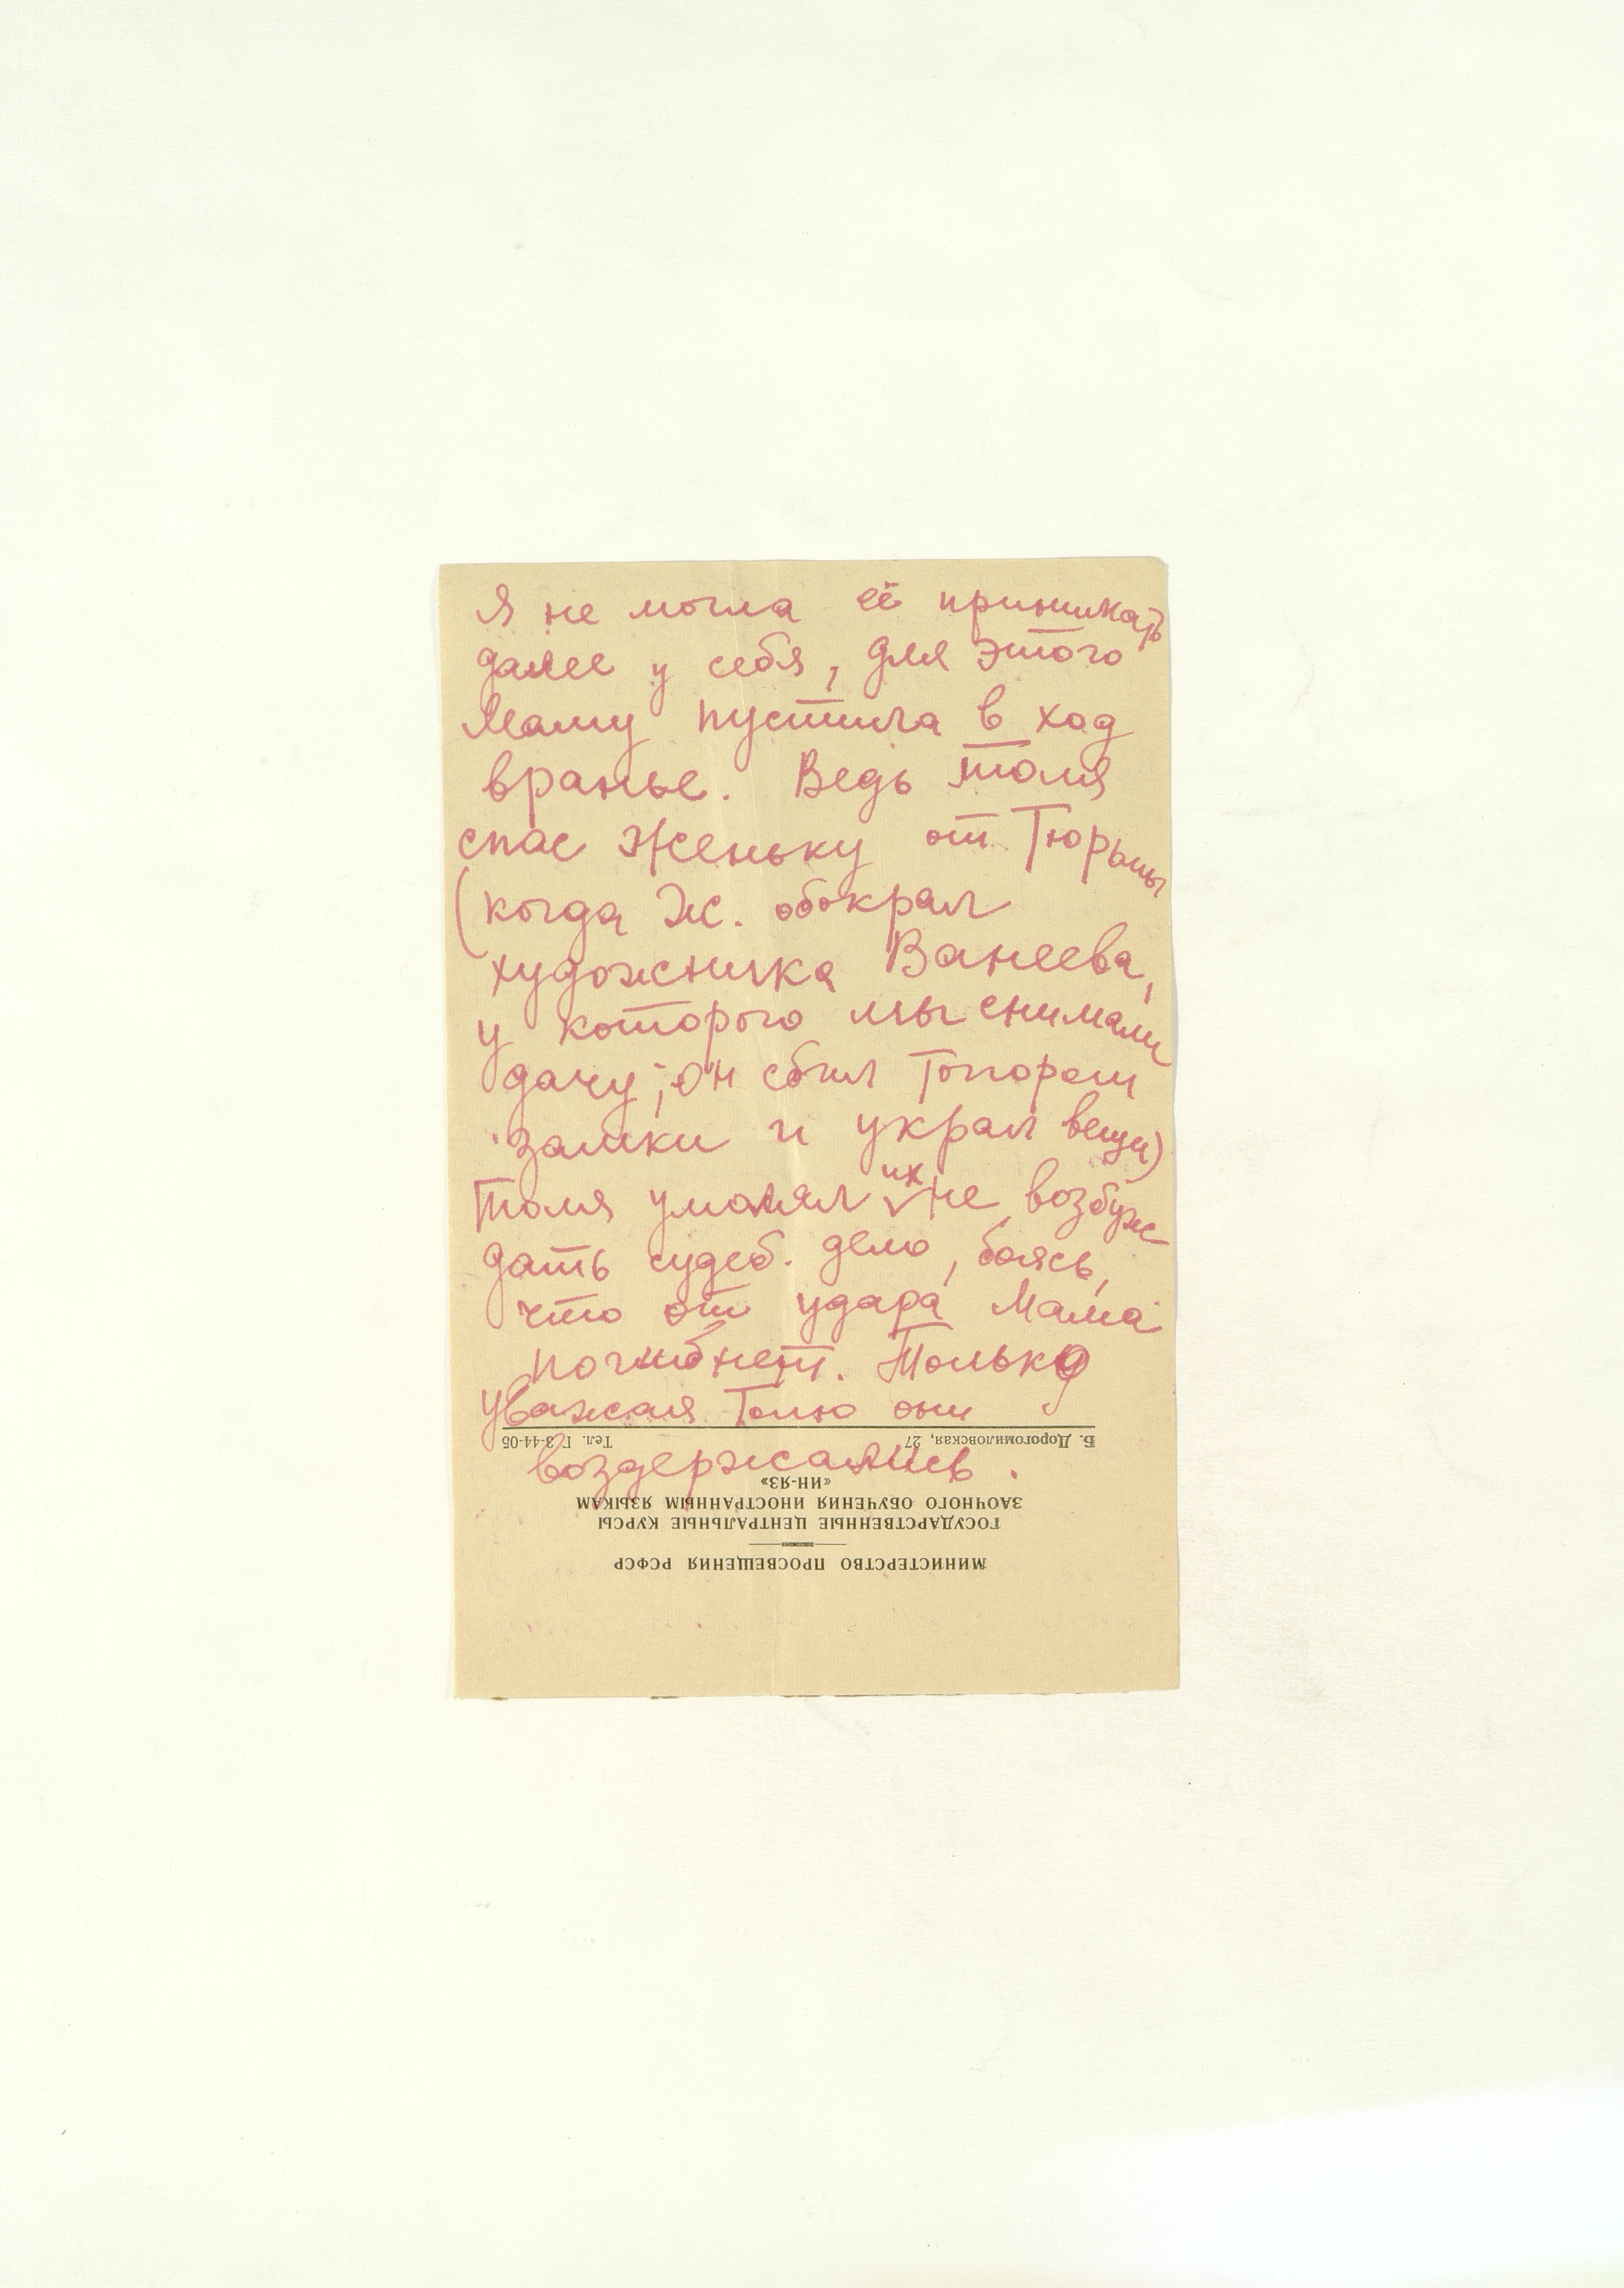 Я не могла её принимать
далее у себя, для этого
Маму пустила в ход
вранье. Ведь Толя
спас Женьку от Тюрьмы
(когда Ж. обокрал
художника Ванеева,
у которого мы снимали
дачу; он сбил топором
замки и украл вещи)
Толя умолял их не возбуж
дать судеб. дело, боясь,
что от удара Мама
погибнет. Только
уважая Толю они
воздержались.
МИНИСТЕРСТВО ПРОСВЕЩЕНИЯ РСФСР
ГОСУДАРСТВЕННЫЕ ЦЕНТРАЛЬНЫЕ КУРСЫ
ЗАОЧНОГО ОБУЧЕНИЯ ИНОСТРАННЫМ ЯЗЫКАМ
«ИН-ЯЗ»
Б. Дорогомиловская, 27 Тел. Г 3-44-05